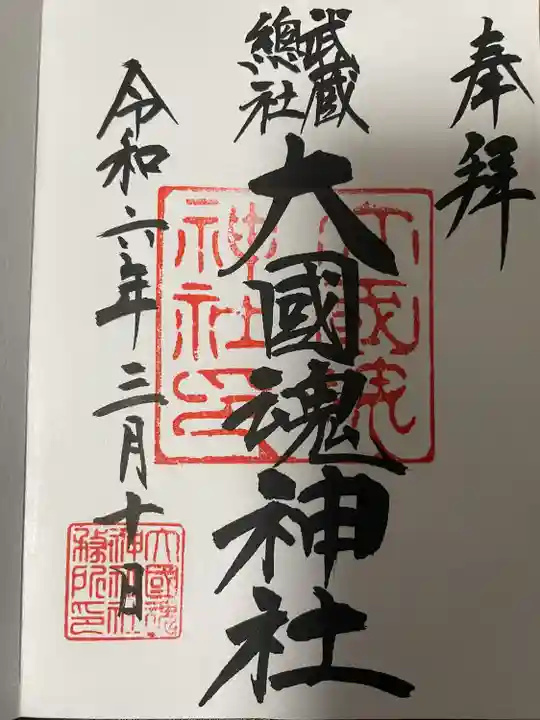 奉拝
武蔵
總社
大國魂神社
令和六年三月十日
大國魂
神社印
大國魂
神社社
務所印